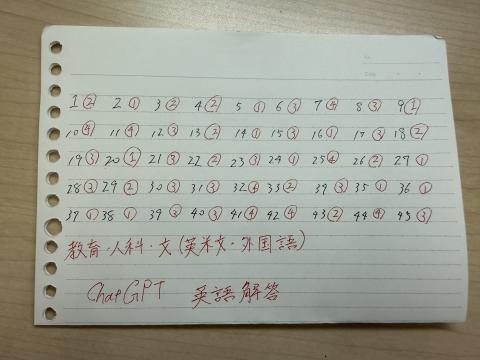 1② 2① 3② 4② 5① 6③ 7④ 8③ 9①
10④ 11④ 12③ 13② 14① 15③ 16① 17③ 18②
19③ 20① 21③ 22② 23③ 24① 25④ 26② 27①
28③ 29② 30③ 31③ 32④ 33② 34③ 35① 36①
37① 38① 39③ 40③ 41④ 42④ 43② 44④ 45③
教育・人科・文(英米文・外国語)
ChatGPT 英語解答